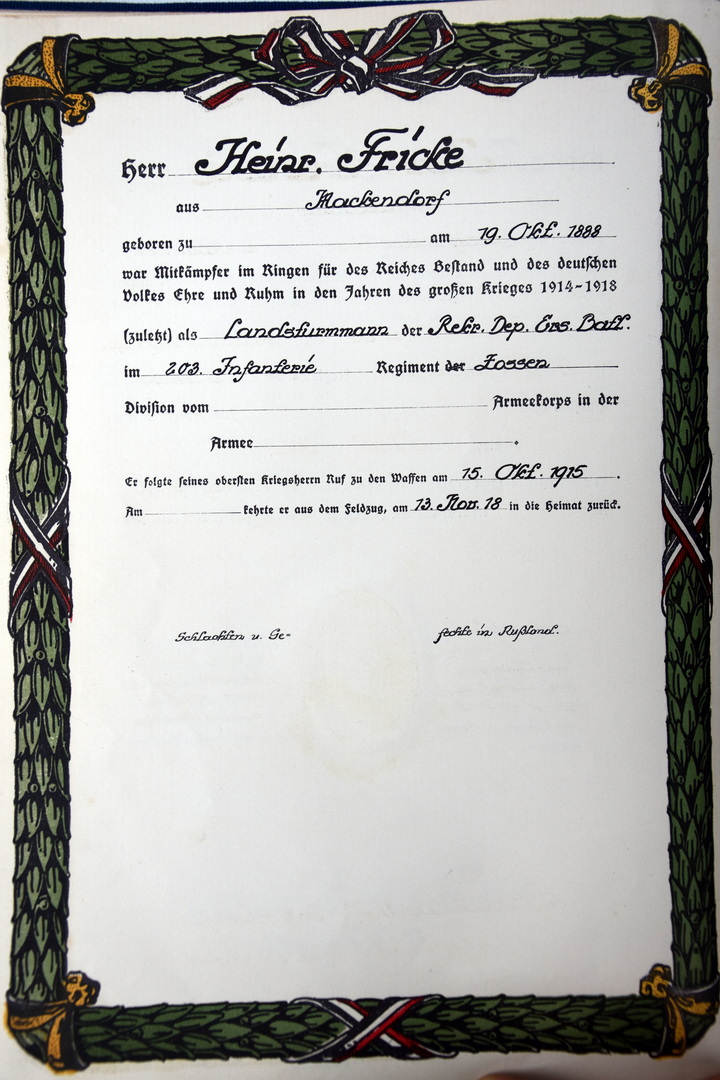 Herr Heinr. Fricke
aus Mackendorf
geboren zu am 19. Okt. 1888
war Mitkämpfer im Ringen für des Reiches Bestand und des deutschen
Volkes Ehre und Ruhm in den Jahren des großen Krieges 1914-1918
(zuletzt) als Landsturmmann der Rekr. Dep. Ers. Batl.
im 203. Infanterie Regiment der Zossen
Division vom Armeekorps in der
Armee .
Er folgte seines obersten Kriegsherrn Ruf zu den Waffen am 15. Okt. 1915 .
Am kehrte er aus dem Feldzug, am 13. Nov. 18 in die Heimat zurück.
Schlachten u. Ge- fechte in Rußland.